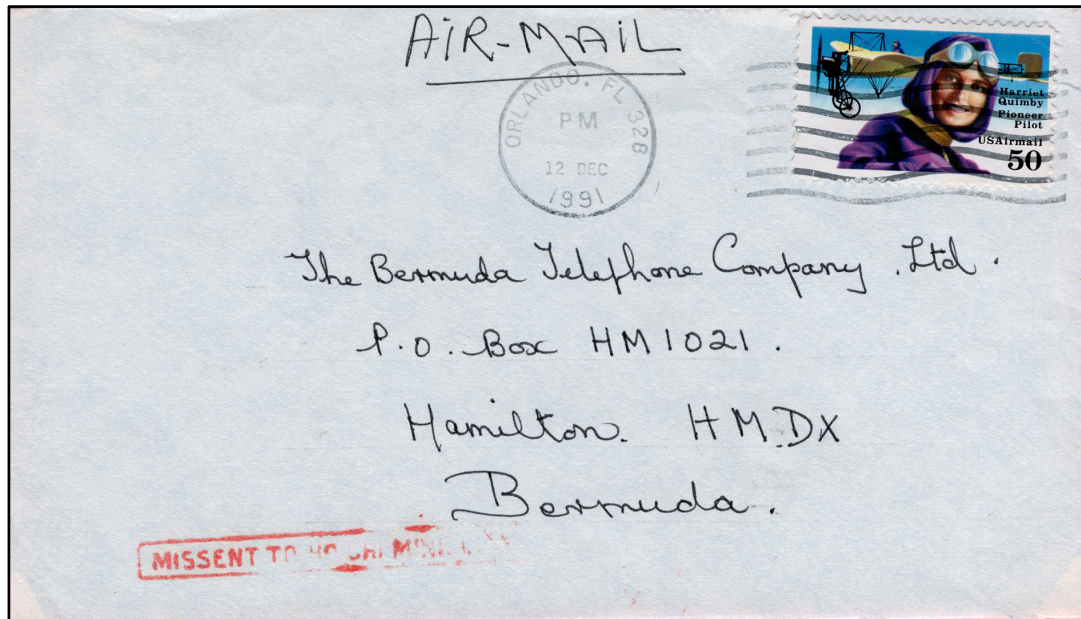 AIR-MAIL
ORLANDO, FL 328
PM
12 DEC
1991
Harriet
Quimby
Pioneer
Pilot
USAirmail
50
The Bermuda Telephone Company Ltd.
P.O. Box HM1021.
Hamilton. HMDX
Bermuda.
MISSENT TO HO CHI MINH CITY